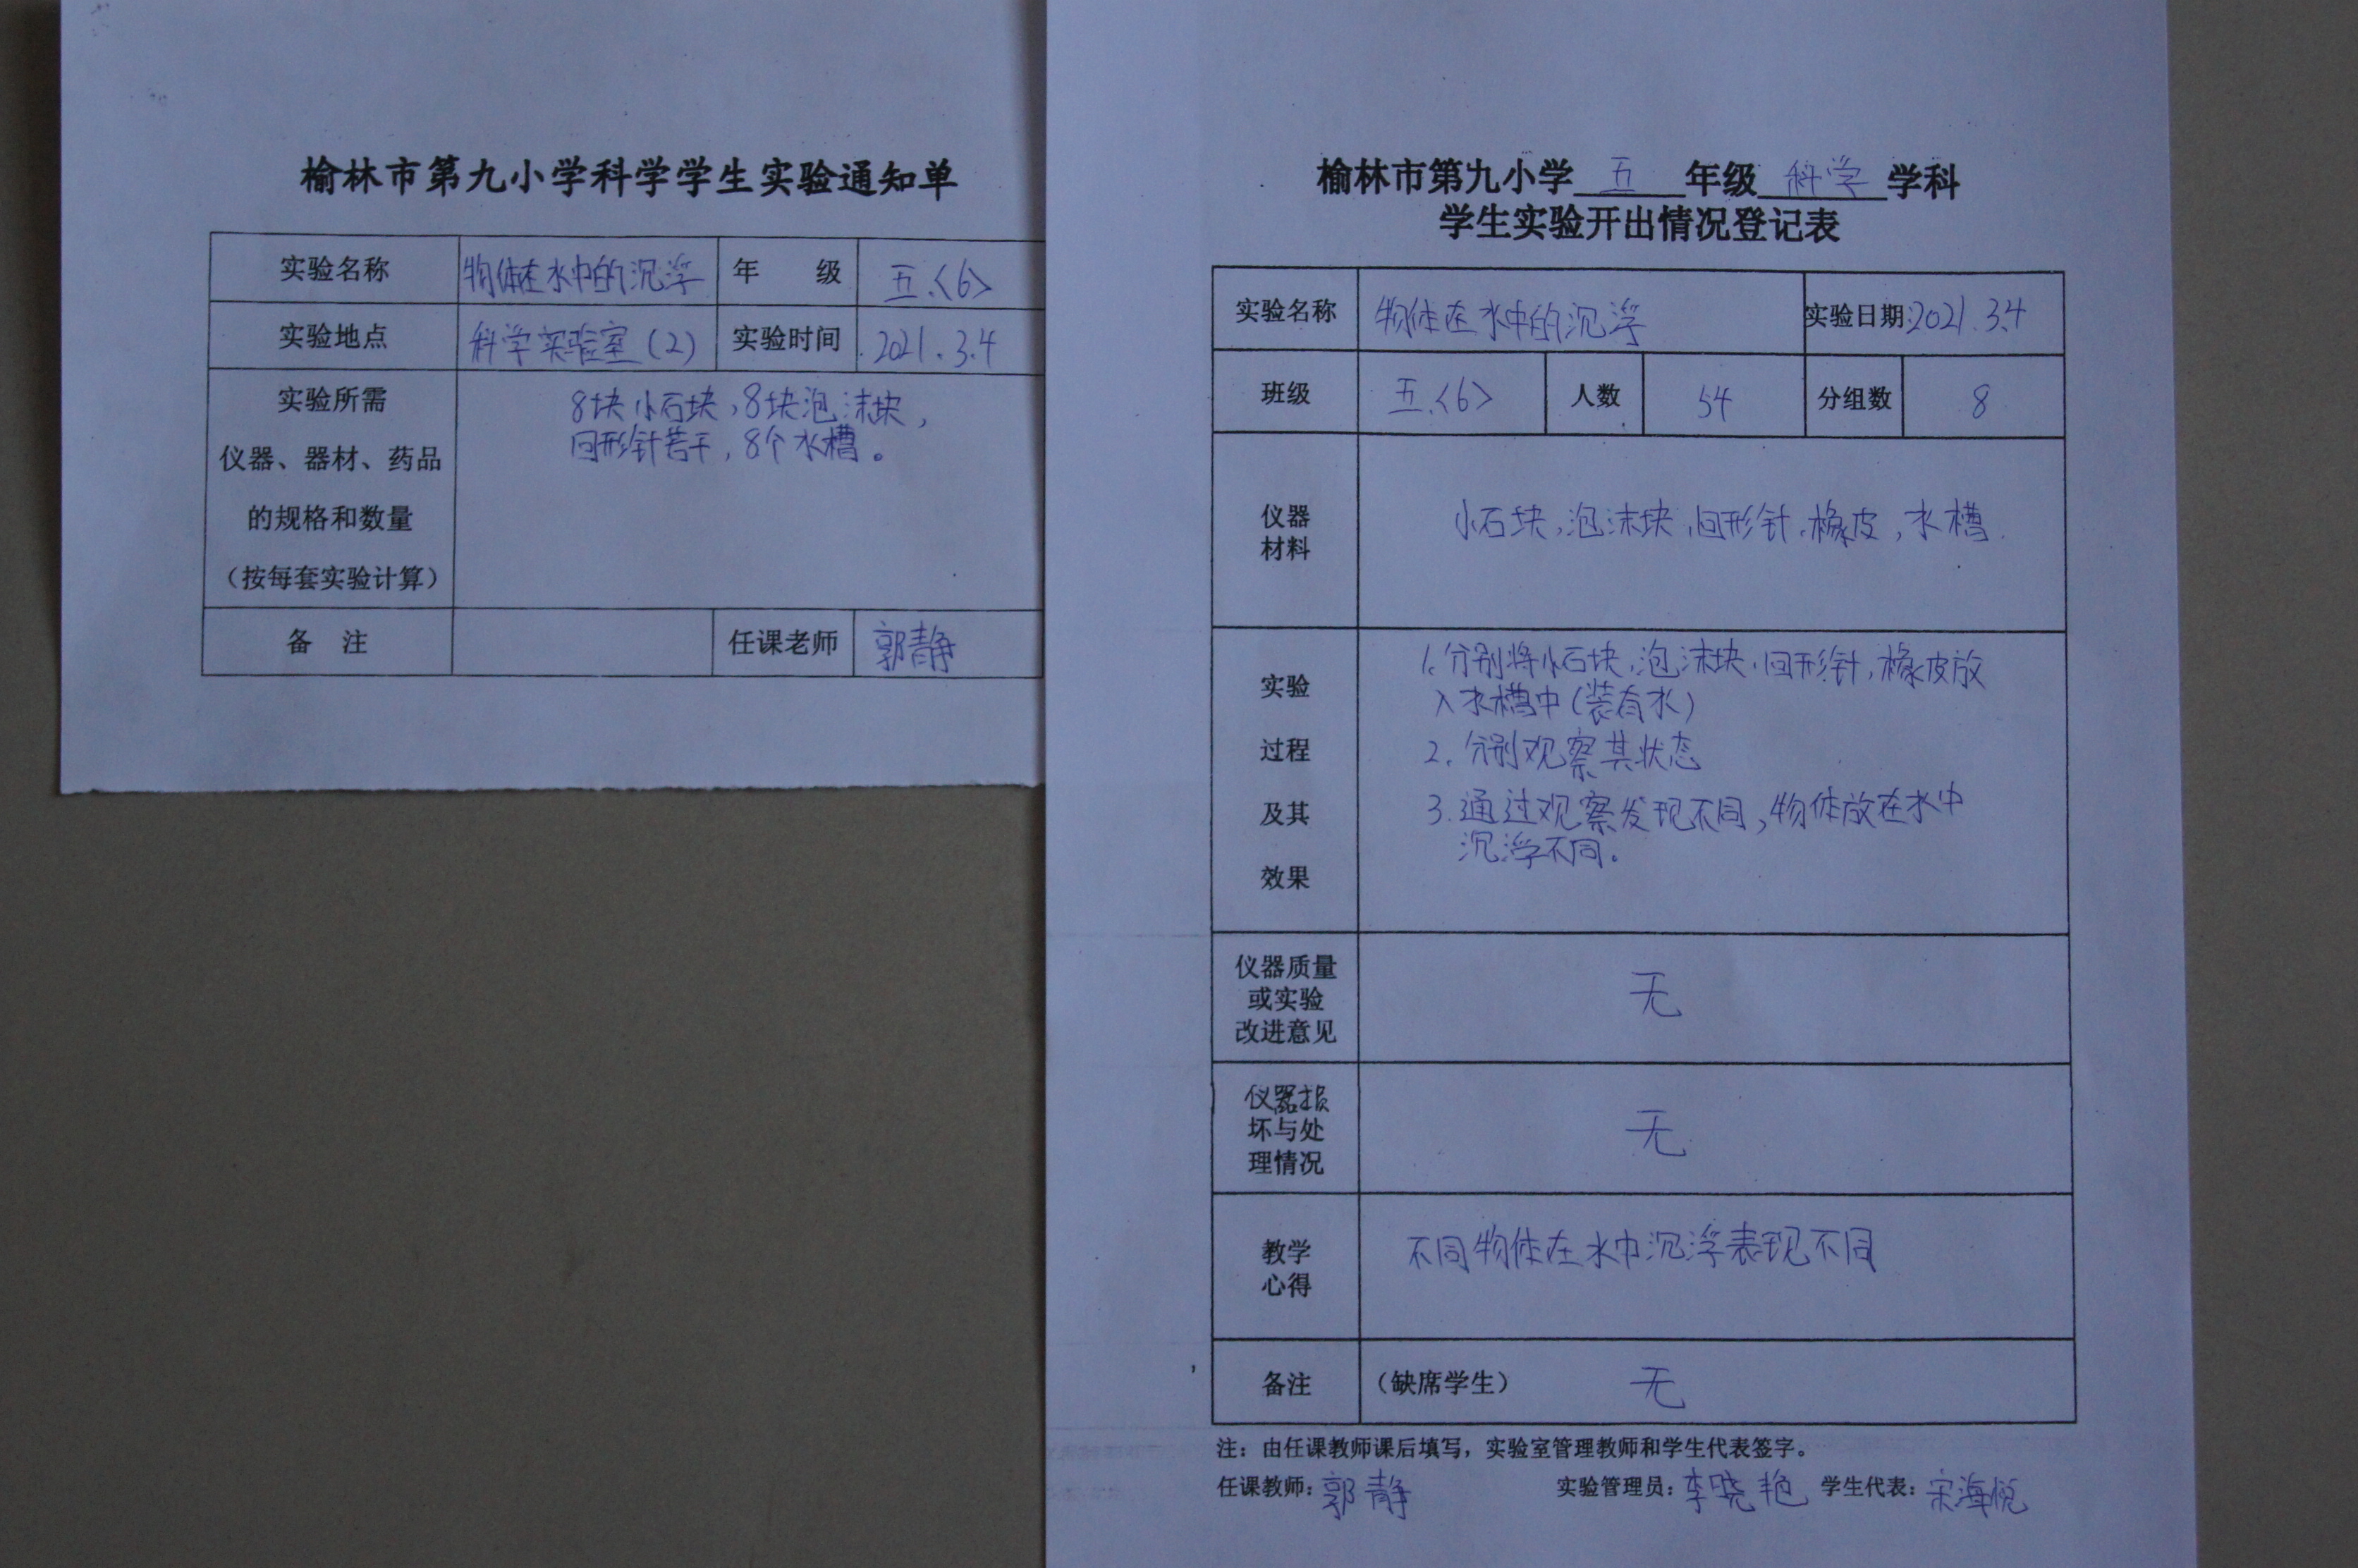 榆林市第九小学科学学生实验通知单
实验名称 物体在水中的沉浮 年 级 五.<6>
实验地点 科学实验室(2) 实验时间 2021.3.4
实验所需
仪器、器材、药品
的规格和数量
（按每套实验计算）
8块小石块,8块泡沫块,
回形针若干,8个水槽。
备 注 任课老师 郭静
榆林市第九小学 五 年级 科学 学科
学生实验开出情况登记表
实验名称 物体在水中的沉浮 实验日期 2021.3.4
班级 五.<6> 人数 54 分组数 8
仪器
材料
小石块,泡沫块,回形针,橡皮,水槽.
实验
过程
及其
效果
1.分别将小石块,泡沫块,回形针,橡皮放
入水槽中(装有水)
2.分别观察其状态
3.通过观察发现不同,物体放在水中
沉浮不同。
仪器质量
或实验
改进意见
无
仪器损
坏与处
理情况
无
教学
心得
不同物体在水中沉浮表现不同
备注 （缺席学生） 无
注：由任课教师课后填写，实验室管理教师和学生代表签字。
任课教师：郭静 实验管理员：李晓艳 学生代表：宋海悦